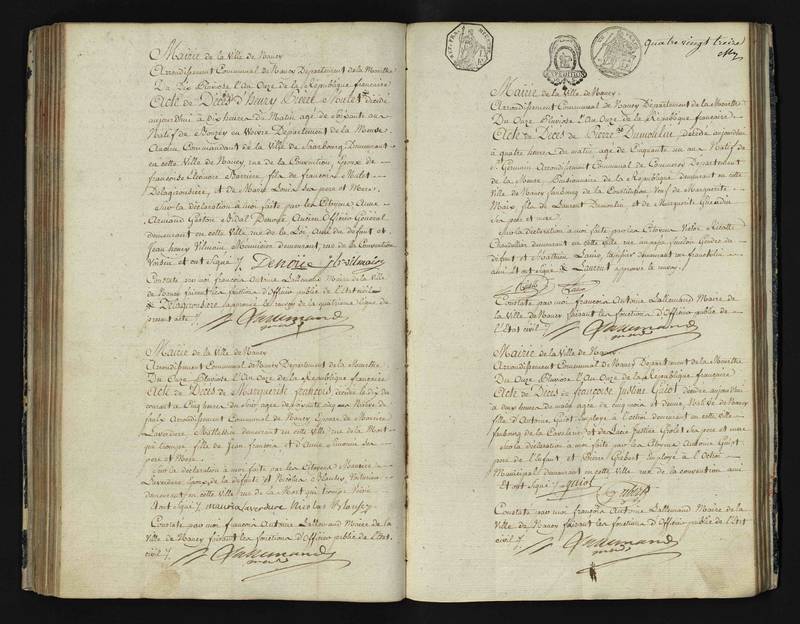 Mairie de la Ville de Nancy
Arrondissement Communal de Nancy Département de la Meurthe
Du Dix Pluviose l'An Onze de la République française
Acte de Décès d'henry Décédé
aujourd'hui à dix heures du Matin, agé de Soixante ans
Natif de en Voivre Département de la Meuse
Ancien Commandant de la Ville de Saarbourg Demeurant
en cette Ville de Nancy, rue de la Convention, Epoux de
françoise Eléonore Barrière, fils de françois Mulet
Delagirousière, et de Marie Louise Ses pere et Mere.
Sur la déclaration à moi faite par les Citoyens Anne
Armand Gaston Vidal Denoue Ancien Officier Général
demeurant en cette Ville rue de la Loi, Ami du défunt et
Jean henry Vilmain, demeurant, rue de la Convention
Voisin et ont Signé ./. Denoüe
Constaté par moi françois Antoine Lallemand Maire de la Ville
de Nancy faisant les fonctions d'Officier public de l'Etat civil
Delagirousière approuvé le renvoi de la quatrieme ligne du
present acte ./. Lallemand
maire
Mairie de la Ville de Nancy
Arrondissement Communal de Nancy Département de la Meurthe
Du Onze Pluviose l'An Onze de la République française
Acte de Décès de Marguerite françois, décédée le dix du
courant à Cinq heures du Soir, agée de Native de
Arrondissement Communal de Nancy, Epouse de Maurice
Laverdure demeurant en cette Ville rue de la Mont
qui trompe fille de Jean françois et d'Anne ses
pere et Mere.
Sur la déclaration à moi faite par les Citoyens Maurice
Laverdure Epoux de la défunte et Nicolas
demeurant en cette Ville rue de la Mont qui trompe Voisin
et ont Signé ./. maurice laverdure Nicolas
Constaté par moi françois Antoine Lallemand Maire de la
Ville de Nancy faisant les fonctions d'Officier public de l'Etat
civil ./. Lallemand
maire
quatre vingt treize
Mairie de la Ville de Nancy
Arrondissement Communal de Nancy Département de la Meurthe
Du Onze Pluviose l'An Onze de la République française
Acte de Décès de Pierre Dumoulin, décédé aujourd'hui
à quatre heures du matin, agé de Cinquante un ans Natif de
St. Germain Arrondissement Communal de Commercy Département
de la Meuse, Pensionnaire de la République demeurant en cette
Ville de Nancy faubourg de la Constitution Veuf de Marguerite
Maix, fils de Laurent Dumoulin, et de Marguerite
Ses pere et mere
Sur la déclaration à moi faite par les Citoyens Victor
demeurant en cette ville Gendre du
défunt et Mathieu demeurant au faubourg
ami et ont Signé Laurent approuvé le renvoi ./.
Constaté par moi françois Antoine Lallemand Maire de
la Ville de Nancy faisant les fonctions d'Officier public de
l'Etat civil ./. Lallemand
maire
Mairie de la Ville de Nancy
Arrondissement Communal de Nancy Département de la Meurthe
Du Onze Pluviose l'An Onze de la République française
Acte de Décès de françoise Justine Guiot décédée aujourd'hui
à heures du matin agée de cinq mois et demi, Native de Nancy
fille d'Antoine Guiot employé à l'octroi demeurant en cette Ville
faubourg de la et de Lucie Ses pere et mere
Sur la déclaration à moi faite par les Citoyens Antoine Guiot
pere de l'Enfant et Pierre Employé à l'Octroi
Municipal demeurant en cette Ville rue de la convention ami
Et ont Signé ./. guiot
Constaté par moi françois Antoine Lallemand Maire de la
Ville de Nancy faisant les fonctions d'Officier public de l'Etat
civil ./. Lallemand
maire